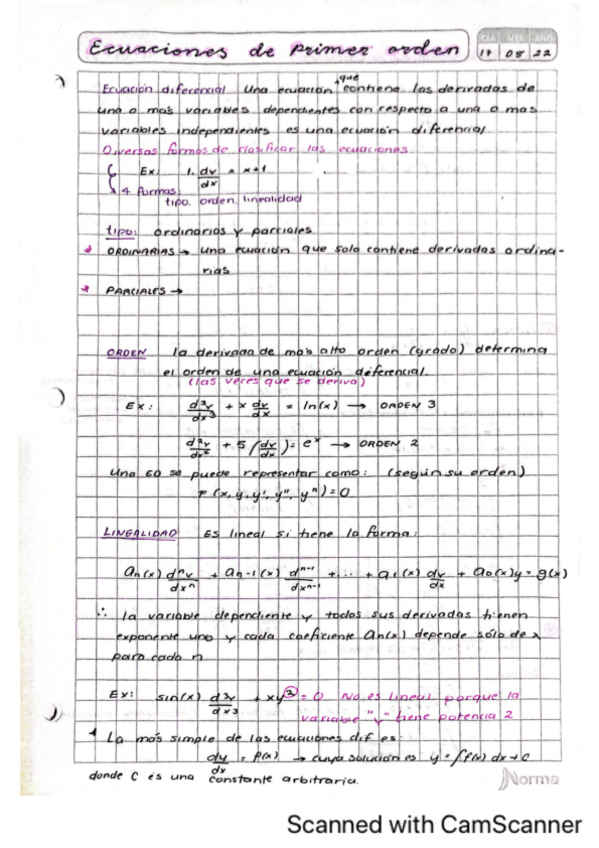 Ecuaciones de primer orden
DIA MES AÑO
17 08 22
que
Ecuación diferencial Una ecuación contiene las derivadas de
una o más variables dependientes con respecto a una o mas
variables independientes es una ecuación diferencial
Diversas formas de clasificar las ecuaciones
Ex: 1. dy/dx = x+1
4 formas:
tipo. orden. linealidad
tipo: ordinarias y parciales
* ORDINARIAS → una ecuación que solo contiene derivadas ordina-
rias
* PARCIALES →
ORDEN la derivada de mas alto orden (grado) determina
el orden de una ecuación diferencial.
(las veces que se deriva)
Ex: d³y/dx³ + x dy/dx = ln(x) → ORDEN 3
d²y/dx² + 5(dy/dx) = eˣ → ORDEN 2
Una ED se puede representar como: (según su orden)
F(x, y, y', y'', yⁿ) = 0
LINEALIDAD Es lineal si tiene la forma:
an(x) dⁿy/dxⁿ + an-1(x) dⁿ⁻¹/dxⁿ⁻¹ + ... + a1(x) dy/dx + a0(x)y = g(x)
∴ la variable dependiente y todos sus derivadas tienen
exponente uno y cada coeficiente an(x) depende sólo de x
para cada n
Ex: sin(x) d³y/dx3 + xy² = 0 No es lineal porque la
variable "y" tiene potencia 2
La más simple de las ecuaciones dif es:
dy/dx = f(x) → cuya solución es y = ∫f(x) dx + C
donde C es una constante arbitraria.
Norma
Scanned with CamScanner